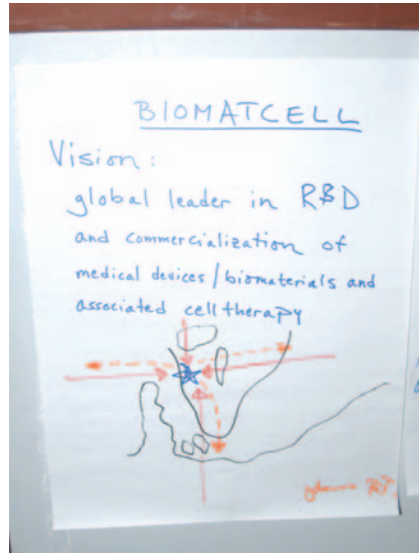 BIOMATCELL
Vision:
global leader in R&D
and commercialization of
medical devices/biomaterials and
associated cell therapy